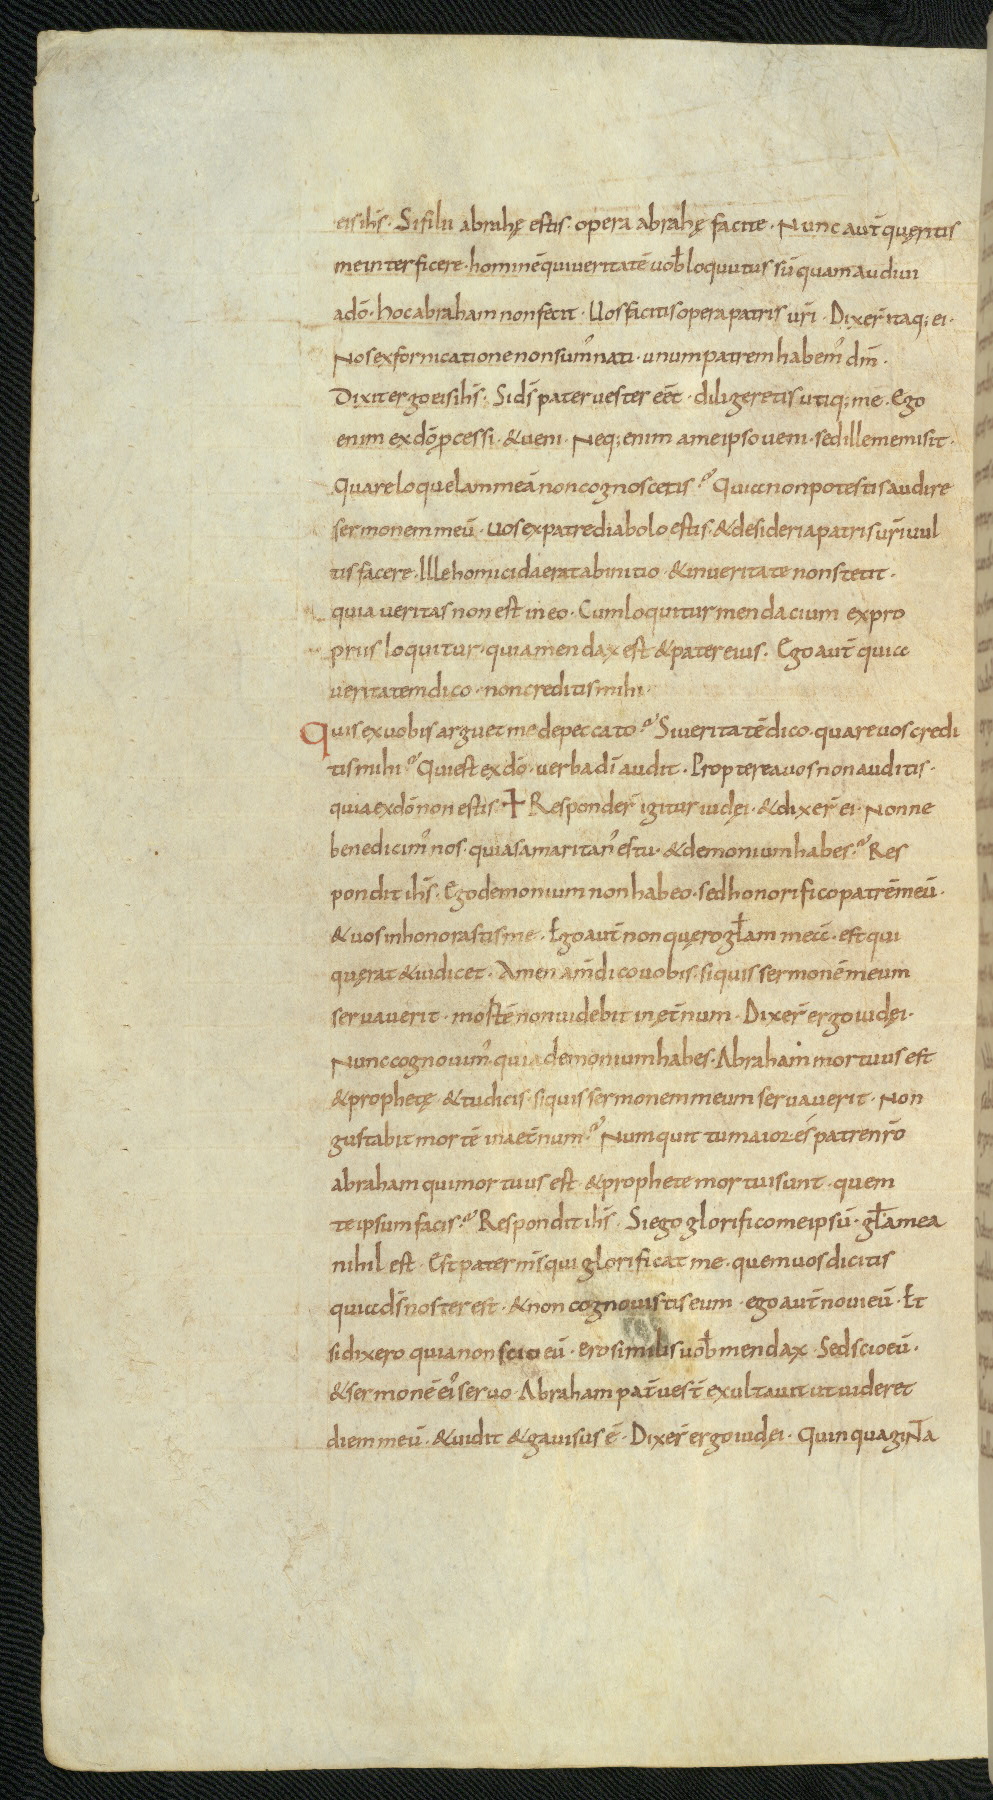 eis ihs̄. Si filii abrahę estis. opera abrahę facite. Nunc aut̄ quęritis
me interficere. hominē qui veritatē vob̄ loquutus sū quam audivi
a dō. hoc abraham non fecit. Uos facitis opera patris ur̄i. Dixer̄ itaq; ei.
Nos ex fornicatione non sum᾽ nati. unum patrem habem᾽ dm̄.
Dixit ergo eis ihs̄. Si ds̄ pater uester eēt. diligeretis utiq; me. Ego
enim ex dō ꝓcessi. & veni. Neq; enim a me ipso veni. sed ille me misit.
Quare loquelam meā non cognoscetis? Quia non potestis audire
sermonem meū. uos ex patre diabolo estis. & desideria patris ur̄i uul
tis facere. Ille homicida erat ab initio. & in ueritate non stetit.
quia veritas non est in eo. Cum loquitur mendacium ex pro
priis loquitur. quia mendax est & pater eius. Ego aut̄ quia
veritatem dico. non creditis mihi.
Quis ex vobis arguet me de peccato? Si veritatē dico. quare vos credi
tis mihi? Qui est ex dō. verba dī audit. Propterea vos non auditis.
quia ex dō non estis. ✝ Responder̄ igitur iudęi. & dixer̄ ei. Nonne
benedicim᾽ nos. quia samaritan᾽ es tu. & demonium habes? Res
pondit ihs̄. Ego demonium non habeo. sed honorifico patrē meū.
& vos inhonorastis me. Ego aut̄ non quęro gl̄am meā. est qui
quęrat & iudicet. Amen am̄ dico vobis. si quis sermonē meum
servaverit. mortē non videbit in ęt̄num. Dixer̄ ergo iudęi.
Nunc cognovim᾽ quia demonium habes. Abraham mortuus est
& prophetę & tu dicis. si quis sermonem meum servaverit. Non
gustabit mortē in aet̄num? Numquit tu maior es patre nr̄o
abraham qui mortuus est. & prophete mortui sunt. quem
te ipsum facis? Respondit ihs̄. Si ego glorifico me ipsū. gl̄a mea
nihil est. Est pater ms̄ qui glorificat me. quem uos dicitis
quia ds̄ noster est. & non cognovistis eum. ego aut̄ novi eū. Et
si dixero quia non scio eū. ero similis vob̄ mendax. Sed scio eū.
& sermonē ei᾽ servo. Abraham pat̄ vest̄ exultavit ut videret
diem meū. & vidit & gavisus ē. Dixer̄ ergo iudęi. Quinquaginta